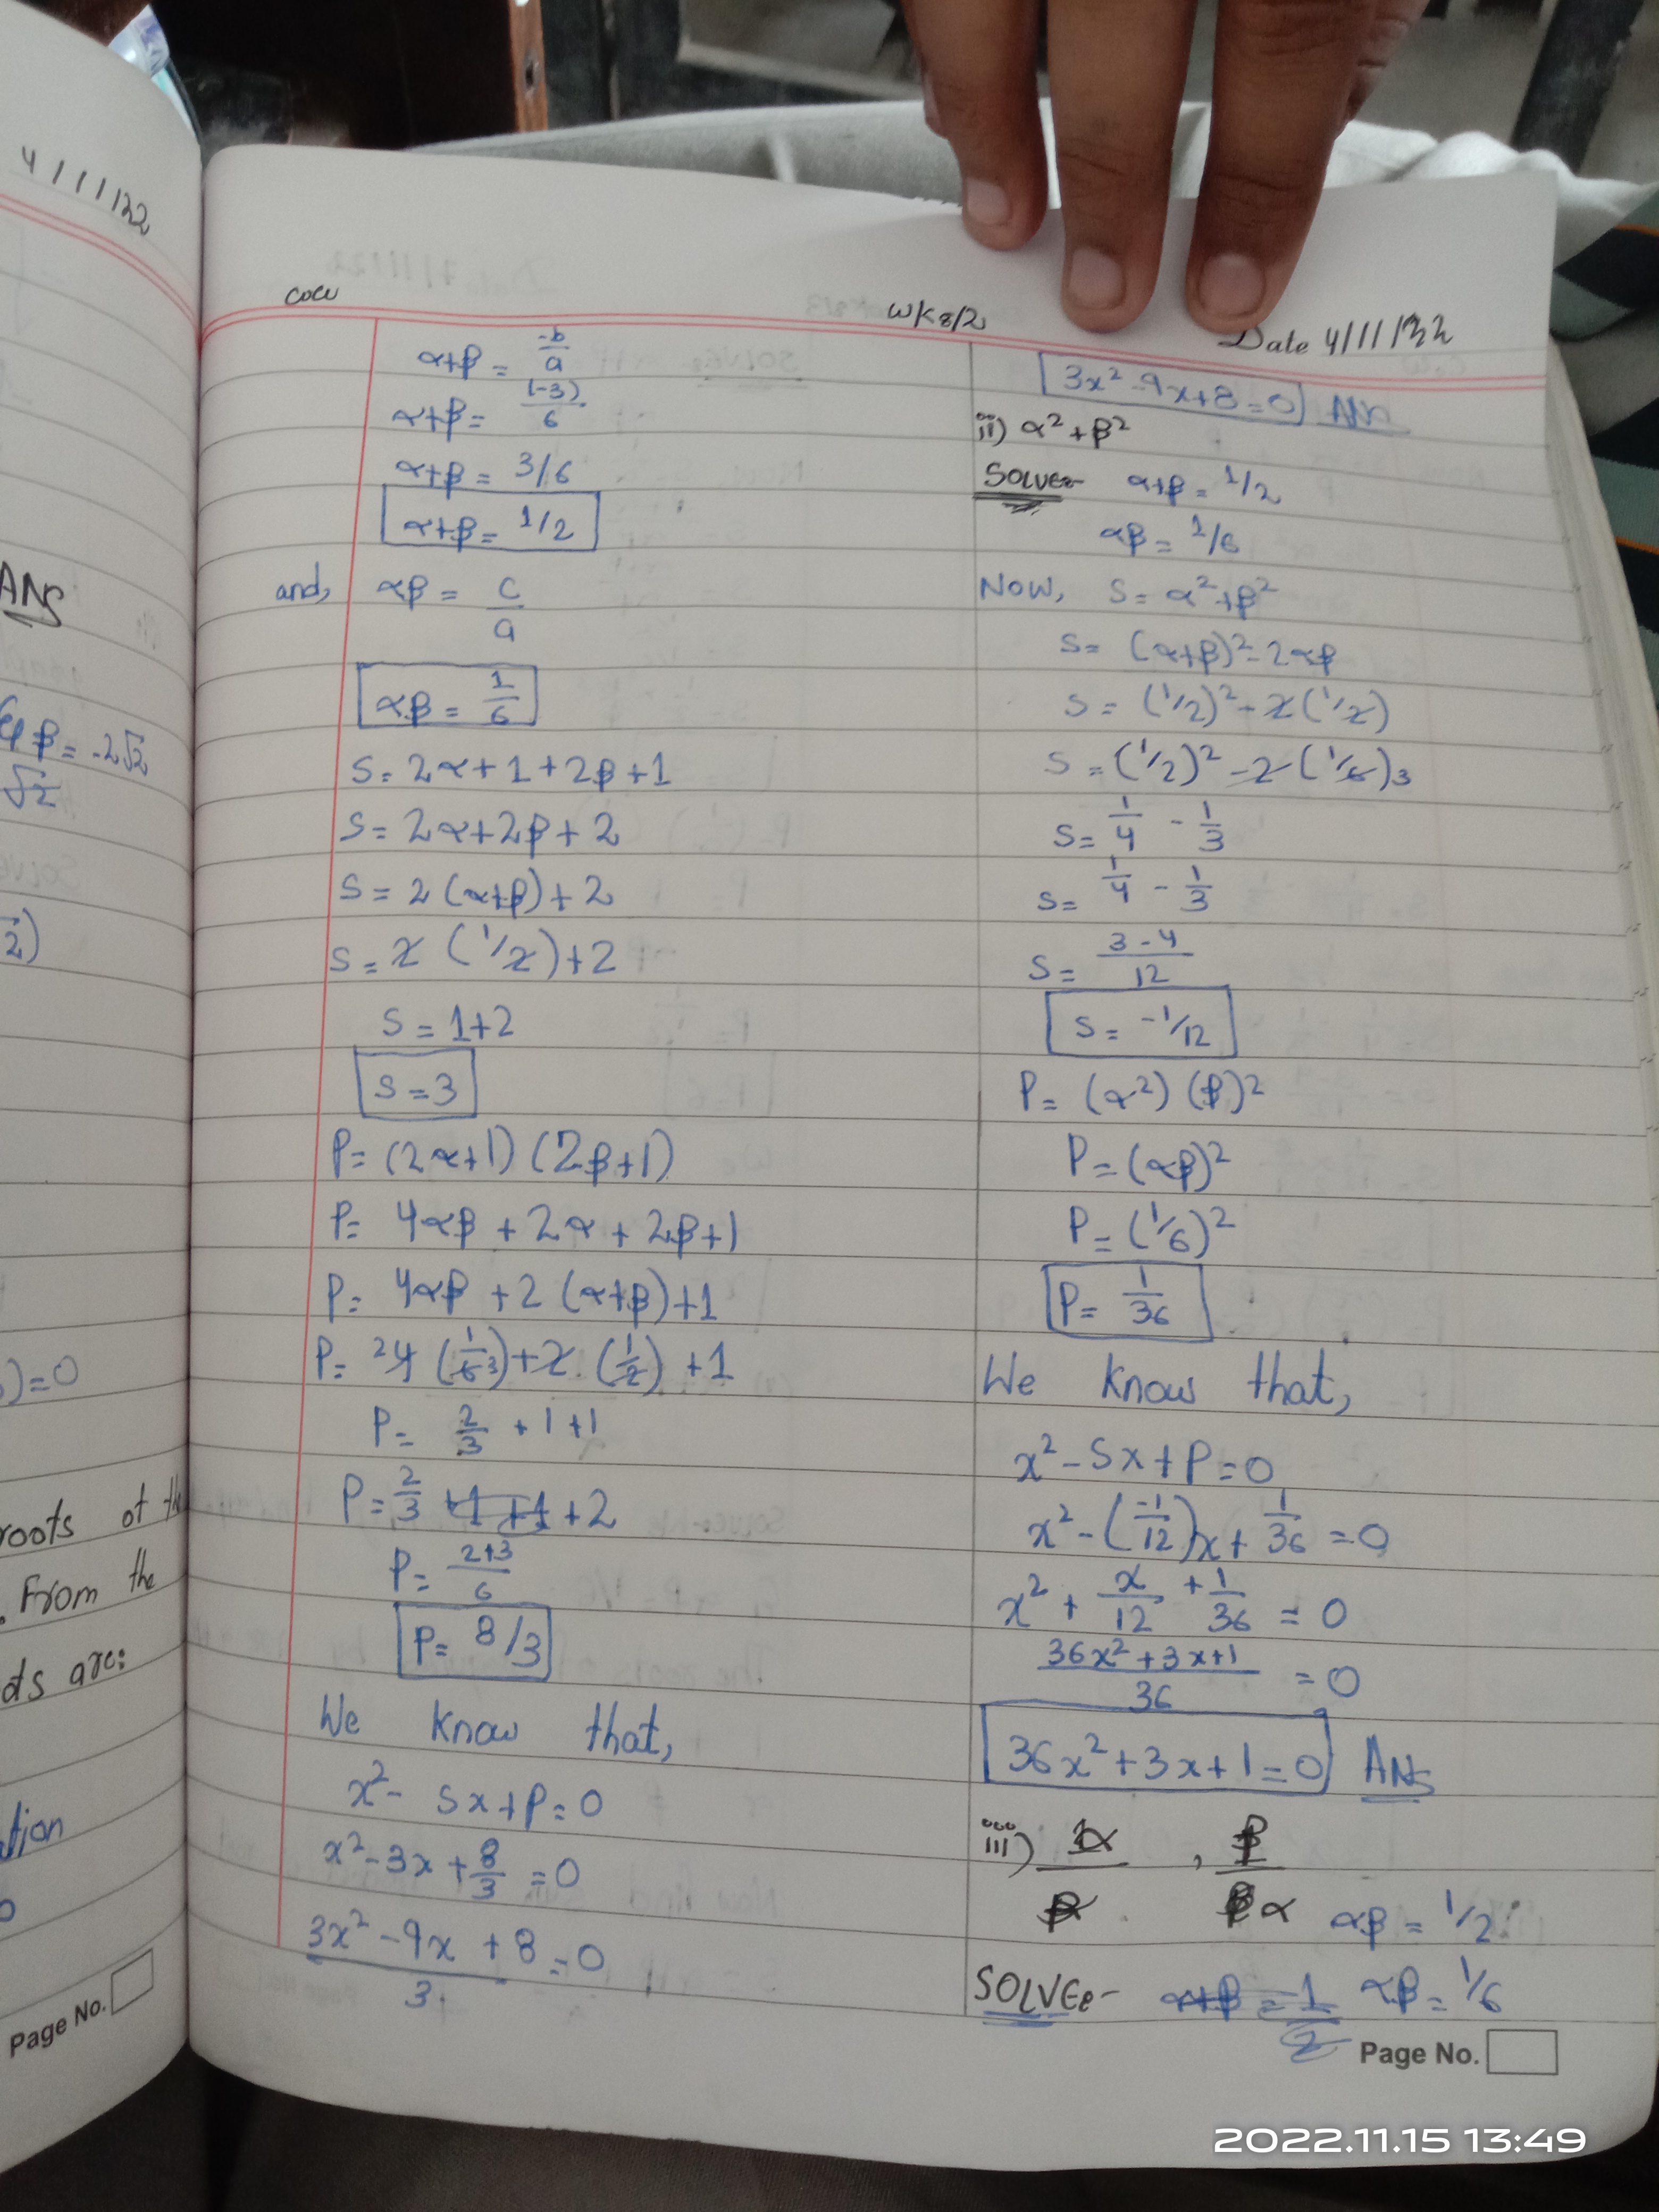 4/11/22
ANS
β = -2√2
√2
2)
) = 0
roots of the
. From the
ots are:
tion
Page No.
cow
wk8/2
Date 4/11/22
α+β = -b/a
α+β = (-3)/6
α+β = 3/6
α+β = 1/2
and, αβ = c/a
αβ = 1/6
S = 2α+1+2β+1
S = 2α+2β+2
S = 2(α+β)+2
S = 2(1/2)+2
S = 1+2
S = 3
P = (2α+1)(2β+1)
P = 4αβ + 2α + 2β+1
P = 4αβ + 2(α+β)+1
P = ²4(1/6 3)+2.(1/2)+1
P = 2/3 + 1 + 1
P = 2/3 +1 +1 +2
P = 2+3/6
P = 8/3
We know that,
x² - Sx+P = 0
x² - 3x + 8/3 = 0
3x² - 9x + 8 = 0
3
3x² - 9x + 8 = 0 ANS
ii) α² + β²
SOLVE:- α+β = 1/2
αβ = 1/6
Now, S = α²+β²
S = (α+β)² - 2αβ
S = (1/2)² - 2(1/2)
S = (1/2)² - 2(1/6)3
S = 1/4 - 1/3
S = 1/4 - 1/3
S = 3-4/12
S = -1/12
P = (α²)(β)²
P = (αβ)²
P = (1/6)²
P = 1/36
We know that,
x² - Sx + P = 0
x² - (-1/12)x + 1/36 = 0
x² + x/12 + 1/36 = 0
36x²+3x+1/36 = 0
36x² + 3x + 1 = 0 ANS
iii) α/β , β/α
αβ = 1/2
SOLVE:- α+β = 1/2 αβ = 1/6
Page No.
2022.11.15 13:49